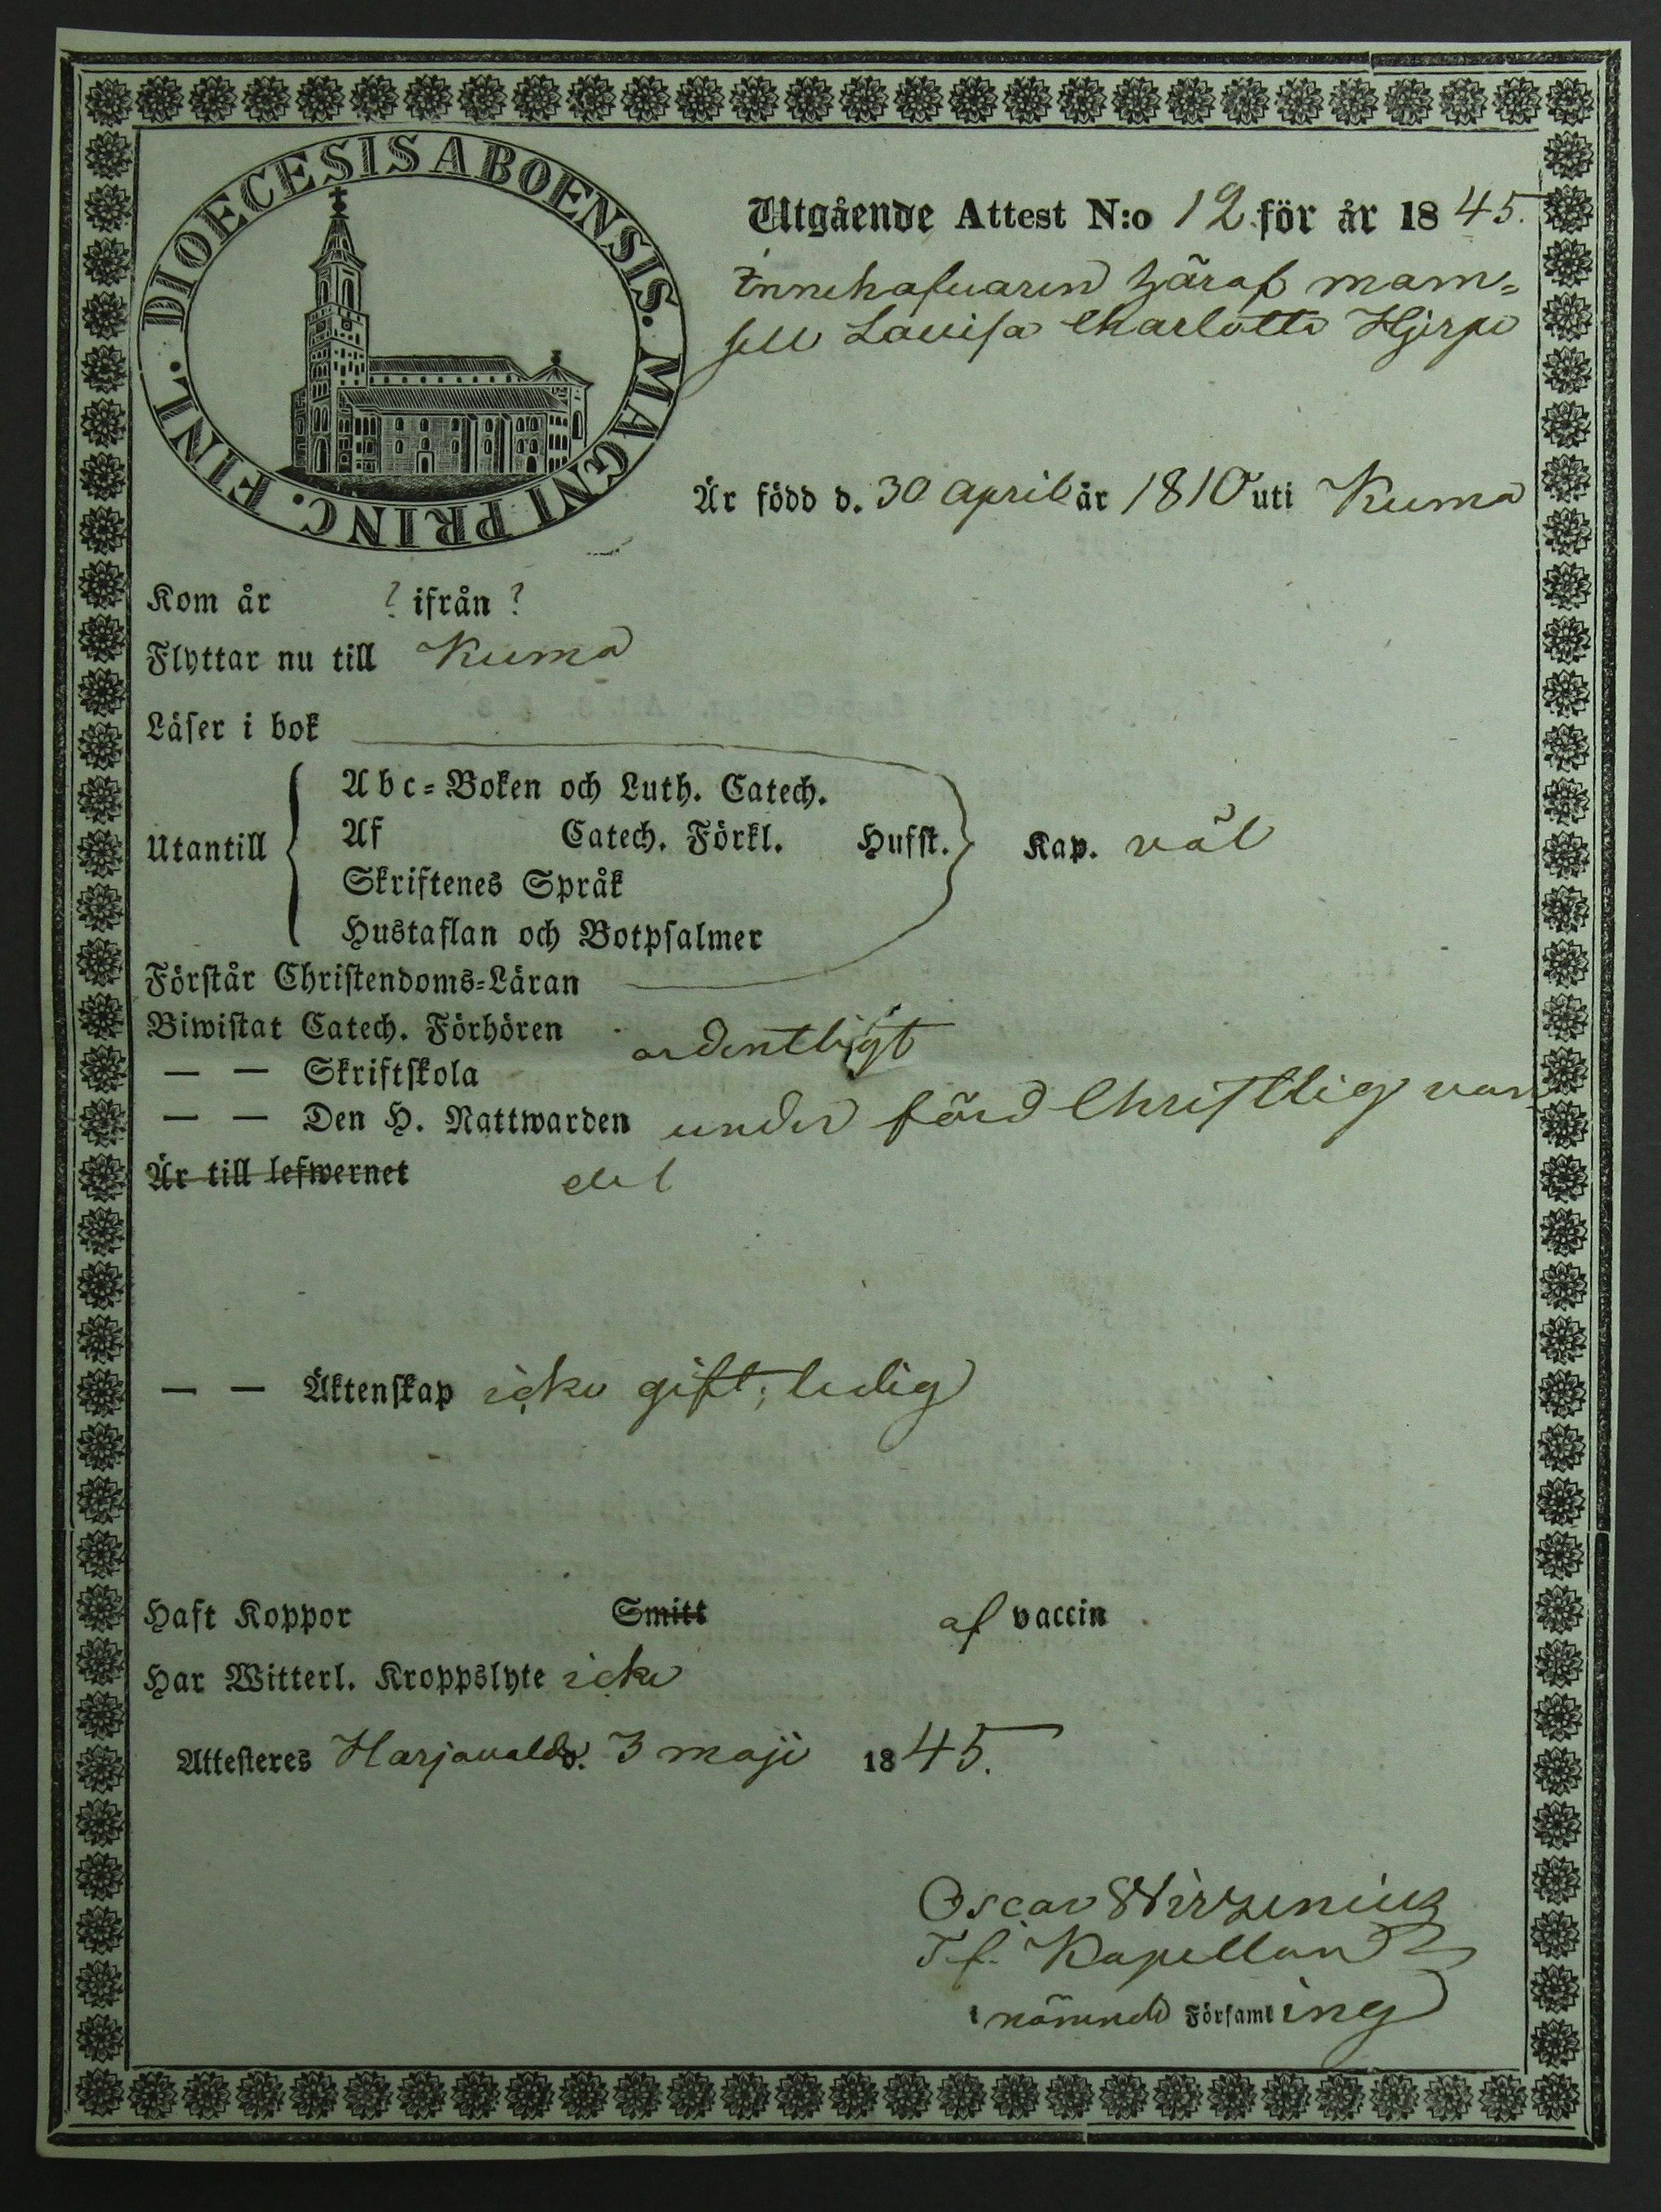 DIOECESIS ABOENSIS. MAGNI PRINC. FINL.
Utgående Attest N:o 12 för år 1845.
Innehafvaren häraf mam=
sell Lovisa Charlotta Hjerpe
Är född d. 30 April år 1810 uti Kumo
Kom år ? ifrån ?
Flyttar nu till Kumo
Läser i bok
Utantill
Abc=Boken och Luth. Catech.
Af Catech. Förkl. Hufst. Kap. väl
Skriftenes Språk
Hustaflan och Botpsalmer
Förstår Christendoms=Läran
Biwistat Catech. Förhören ordentligt
— — Skriftskola
— — Den H. Nattwarden under förd Christlig van
Är till lefwernet del
— — Äktenskap icke gift; ledig
Haft Koppor Smitt af vaccin
Har Witterl. Kroppslyte icke
Attesteres Harjavalda d. 3 maji 1845.
Oscar Wirzenius
Tf. Kapellan
i nämnde Församling